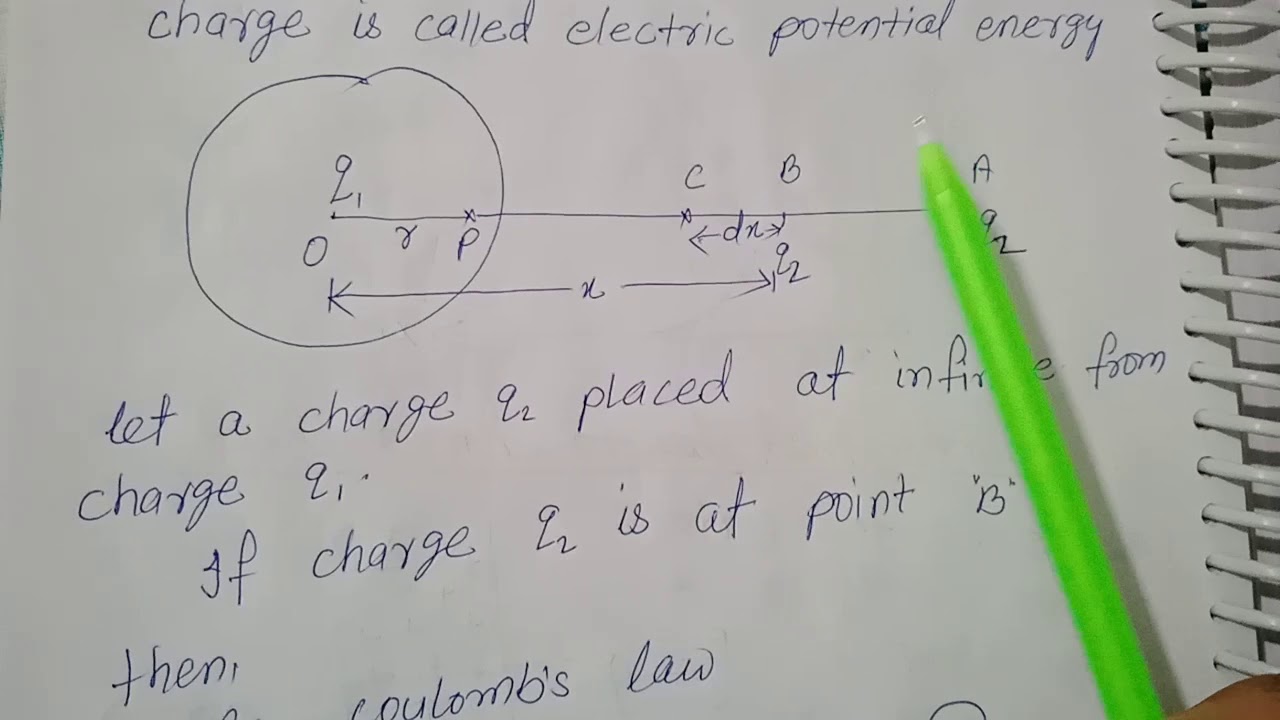 charge is called electric potential energy
C B A
q1
O r P dx q2
q2
x
let a charge q2 placed at from
charge q1.
If charge q2 is at point "B"
then,
coulomb's law